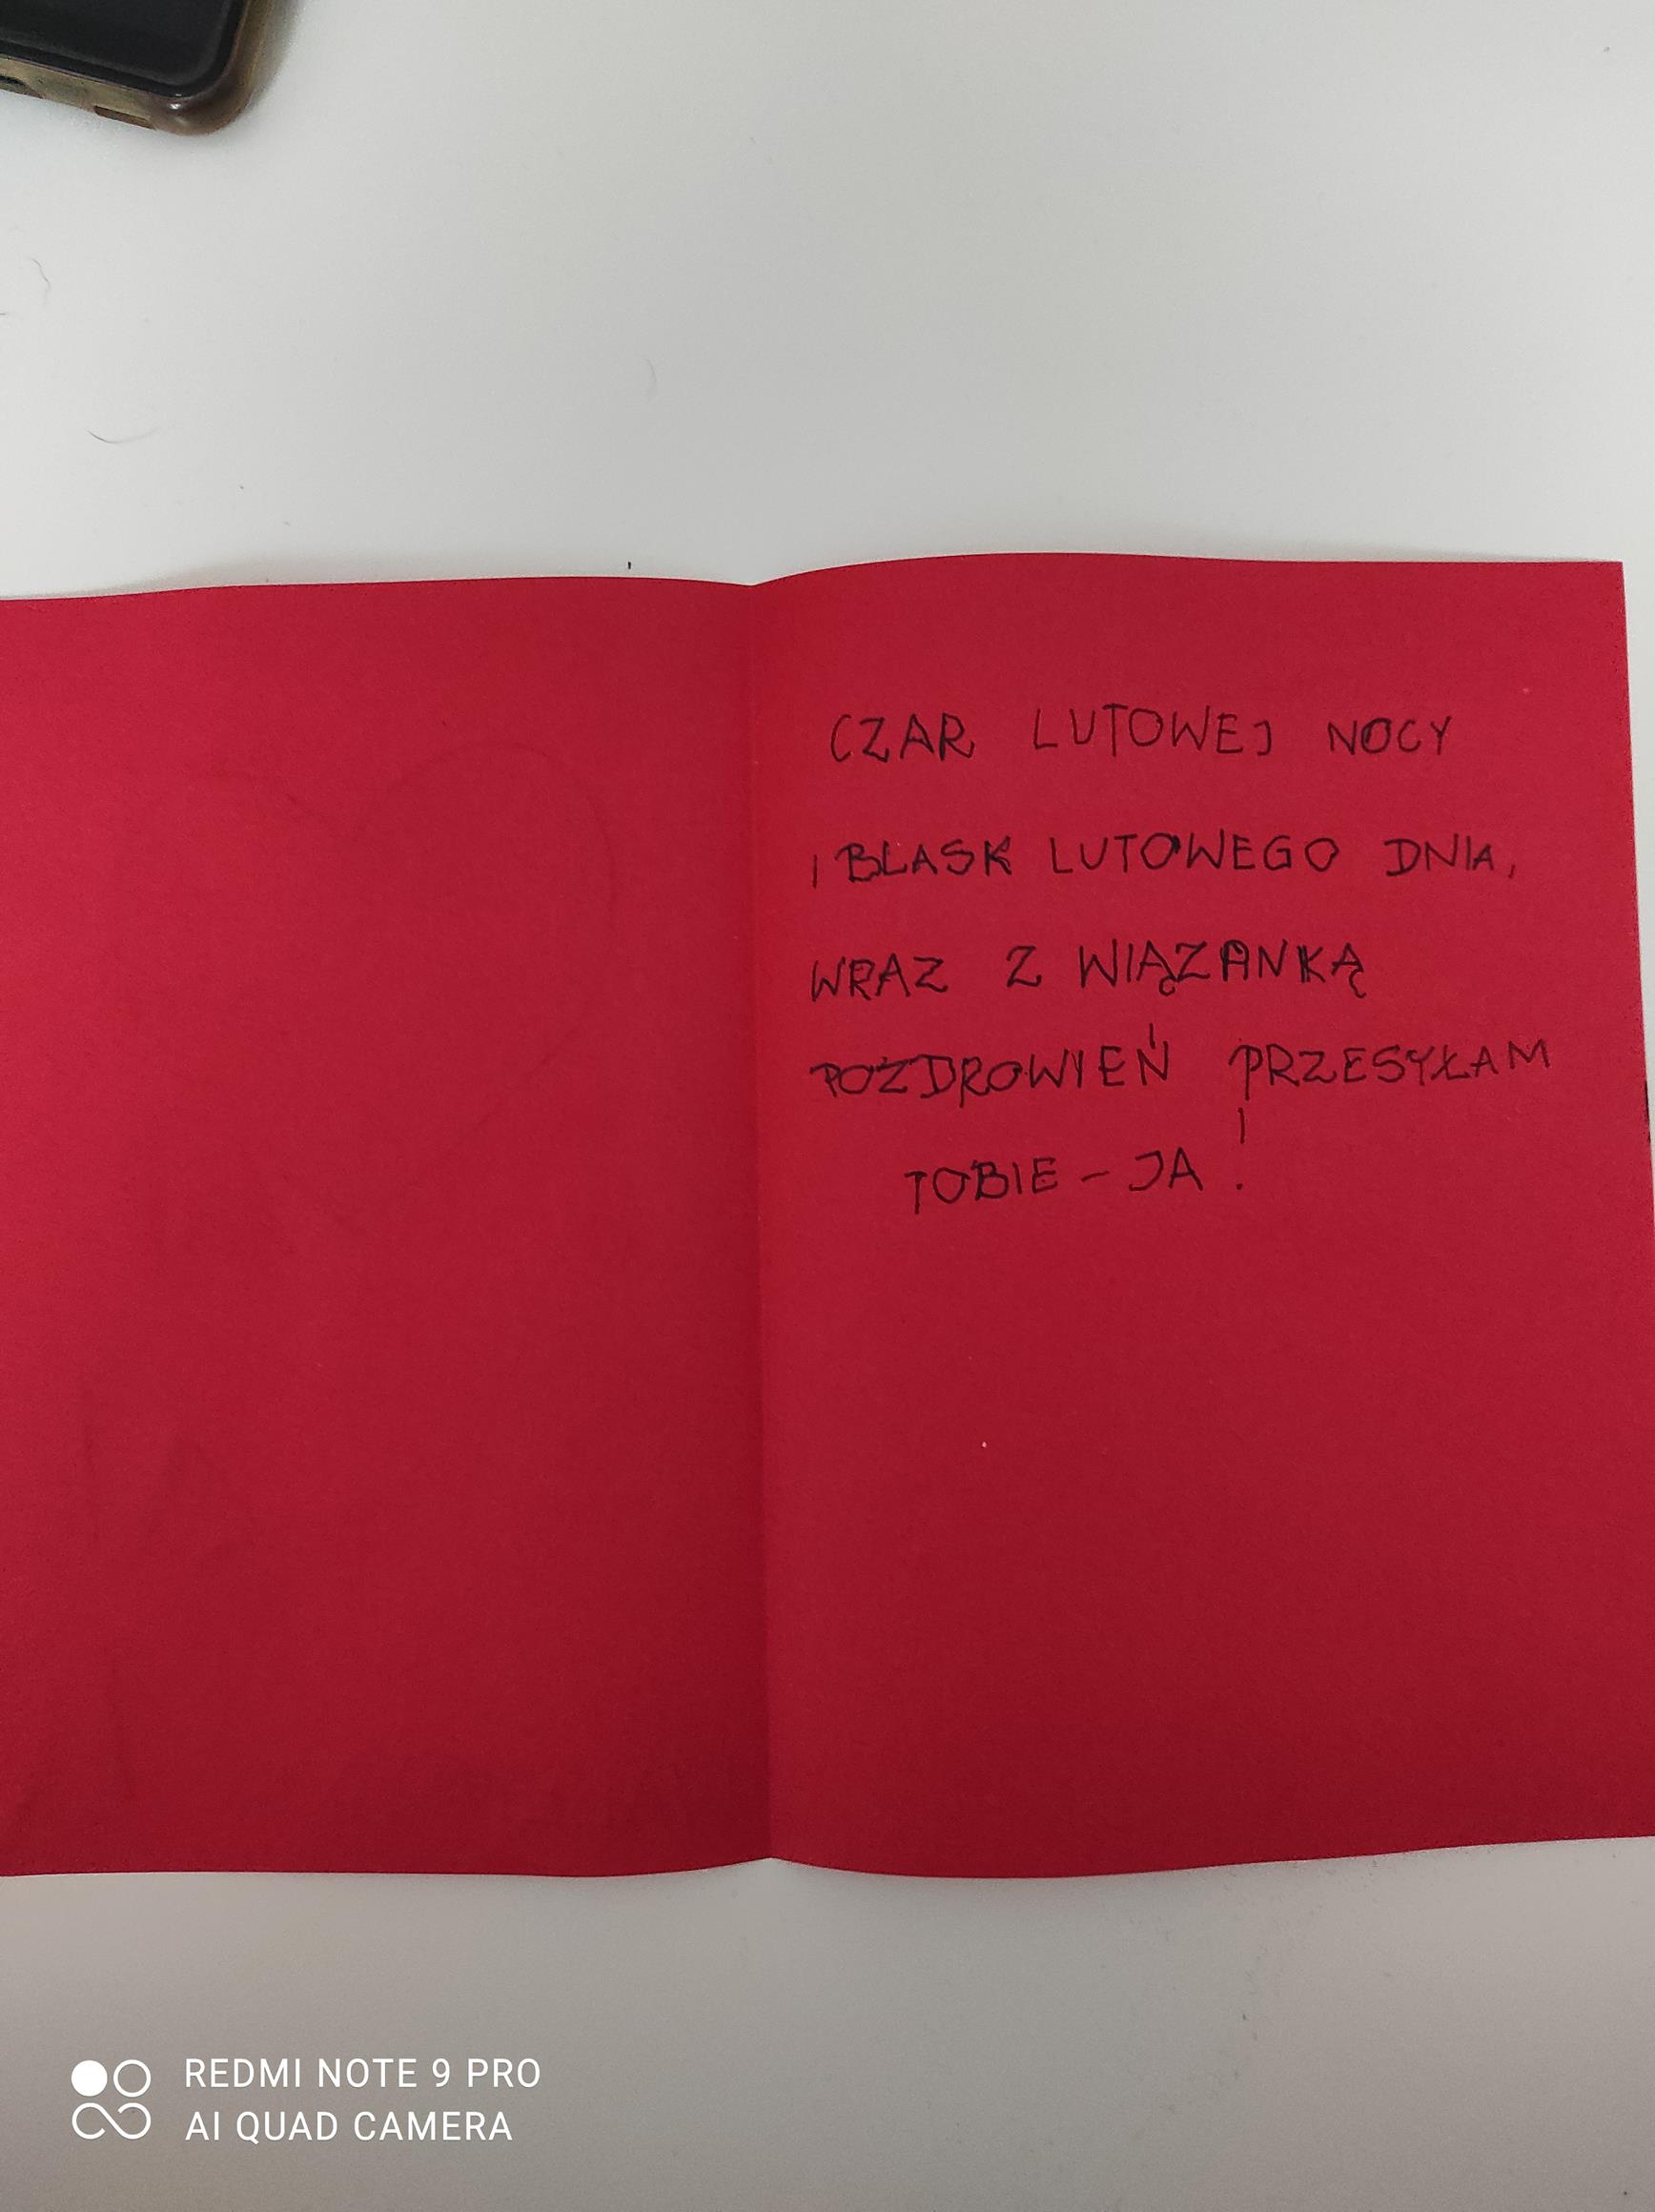 CZAR LUTOWEJ NOCY
I BLASK LUTOWEGO DNIA,
WRAZ Z WIĄZANKĄ
POZDROWIEŃ PRZESYŁAM
TOBIE – JA!
REDMI NOTE 9 PRO
AI QUAD CAMERA